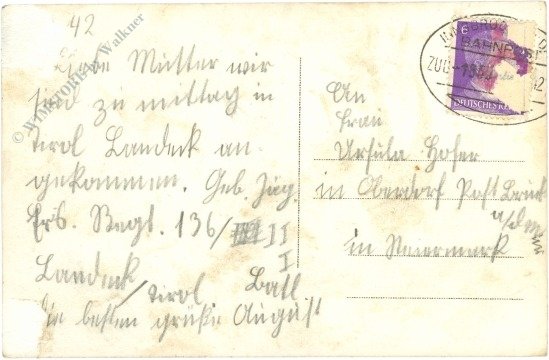 42
Liebe Mutter wir
sind zu mittag in
Tirol Landeck an-
gekommen. Geb. Jäg.
Ers. Regt. 136/ II
I
Landeck/Tirol Batl
Die besten grüße August
An
Frau
Ursula Hofer
in Oberdorf Post Bruck
a/d Mur
in Steiermark
INNSBRUCK
BAHNPOST
ZUG
6
DEUTSCHES REICH
© WIMSTORIEN Walkner